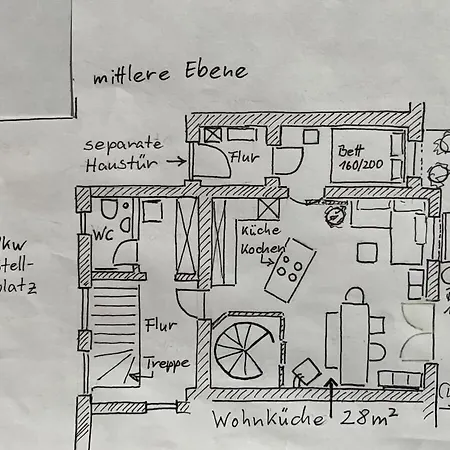 mittlere Ebene
separate
Haustür
Flur
Bett
160/200
WC
Küche
Kochen
kw
tell-
platz
Flur
Treppe
Wohnküche 28m²